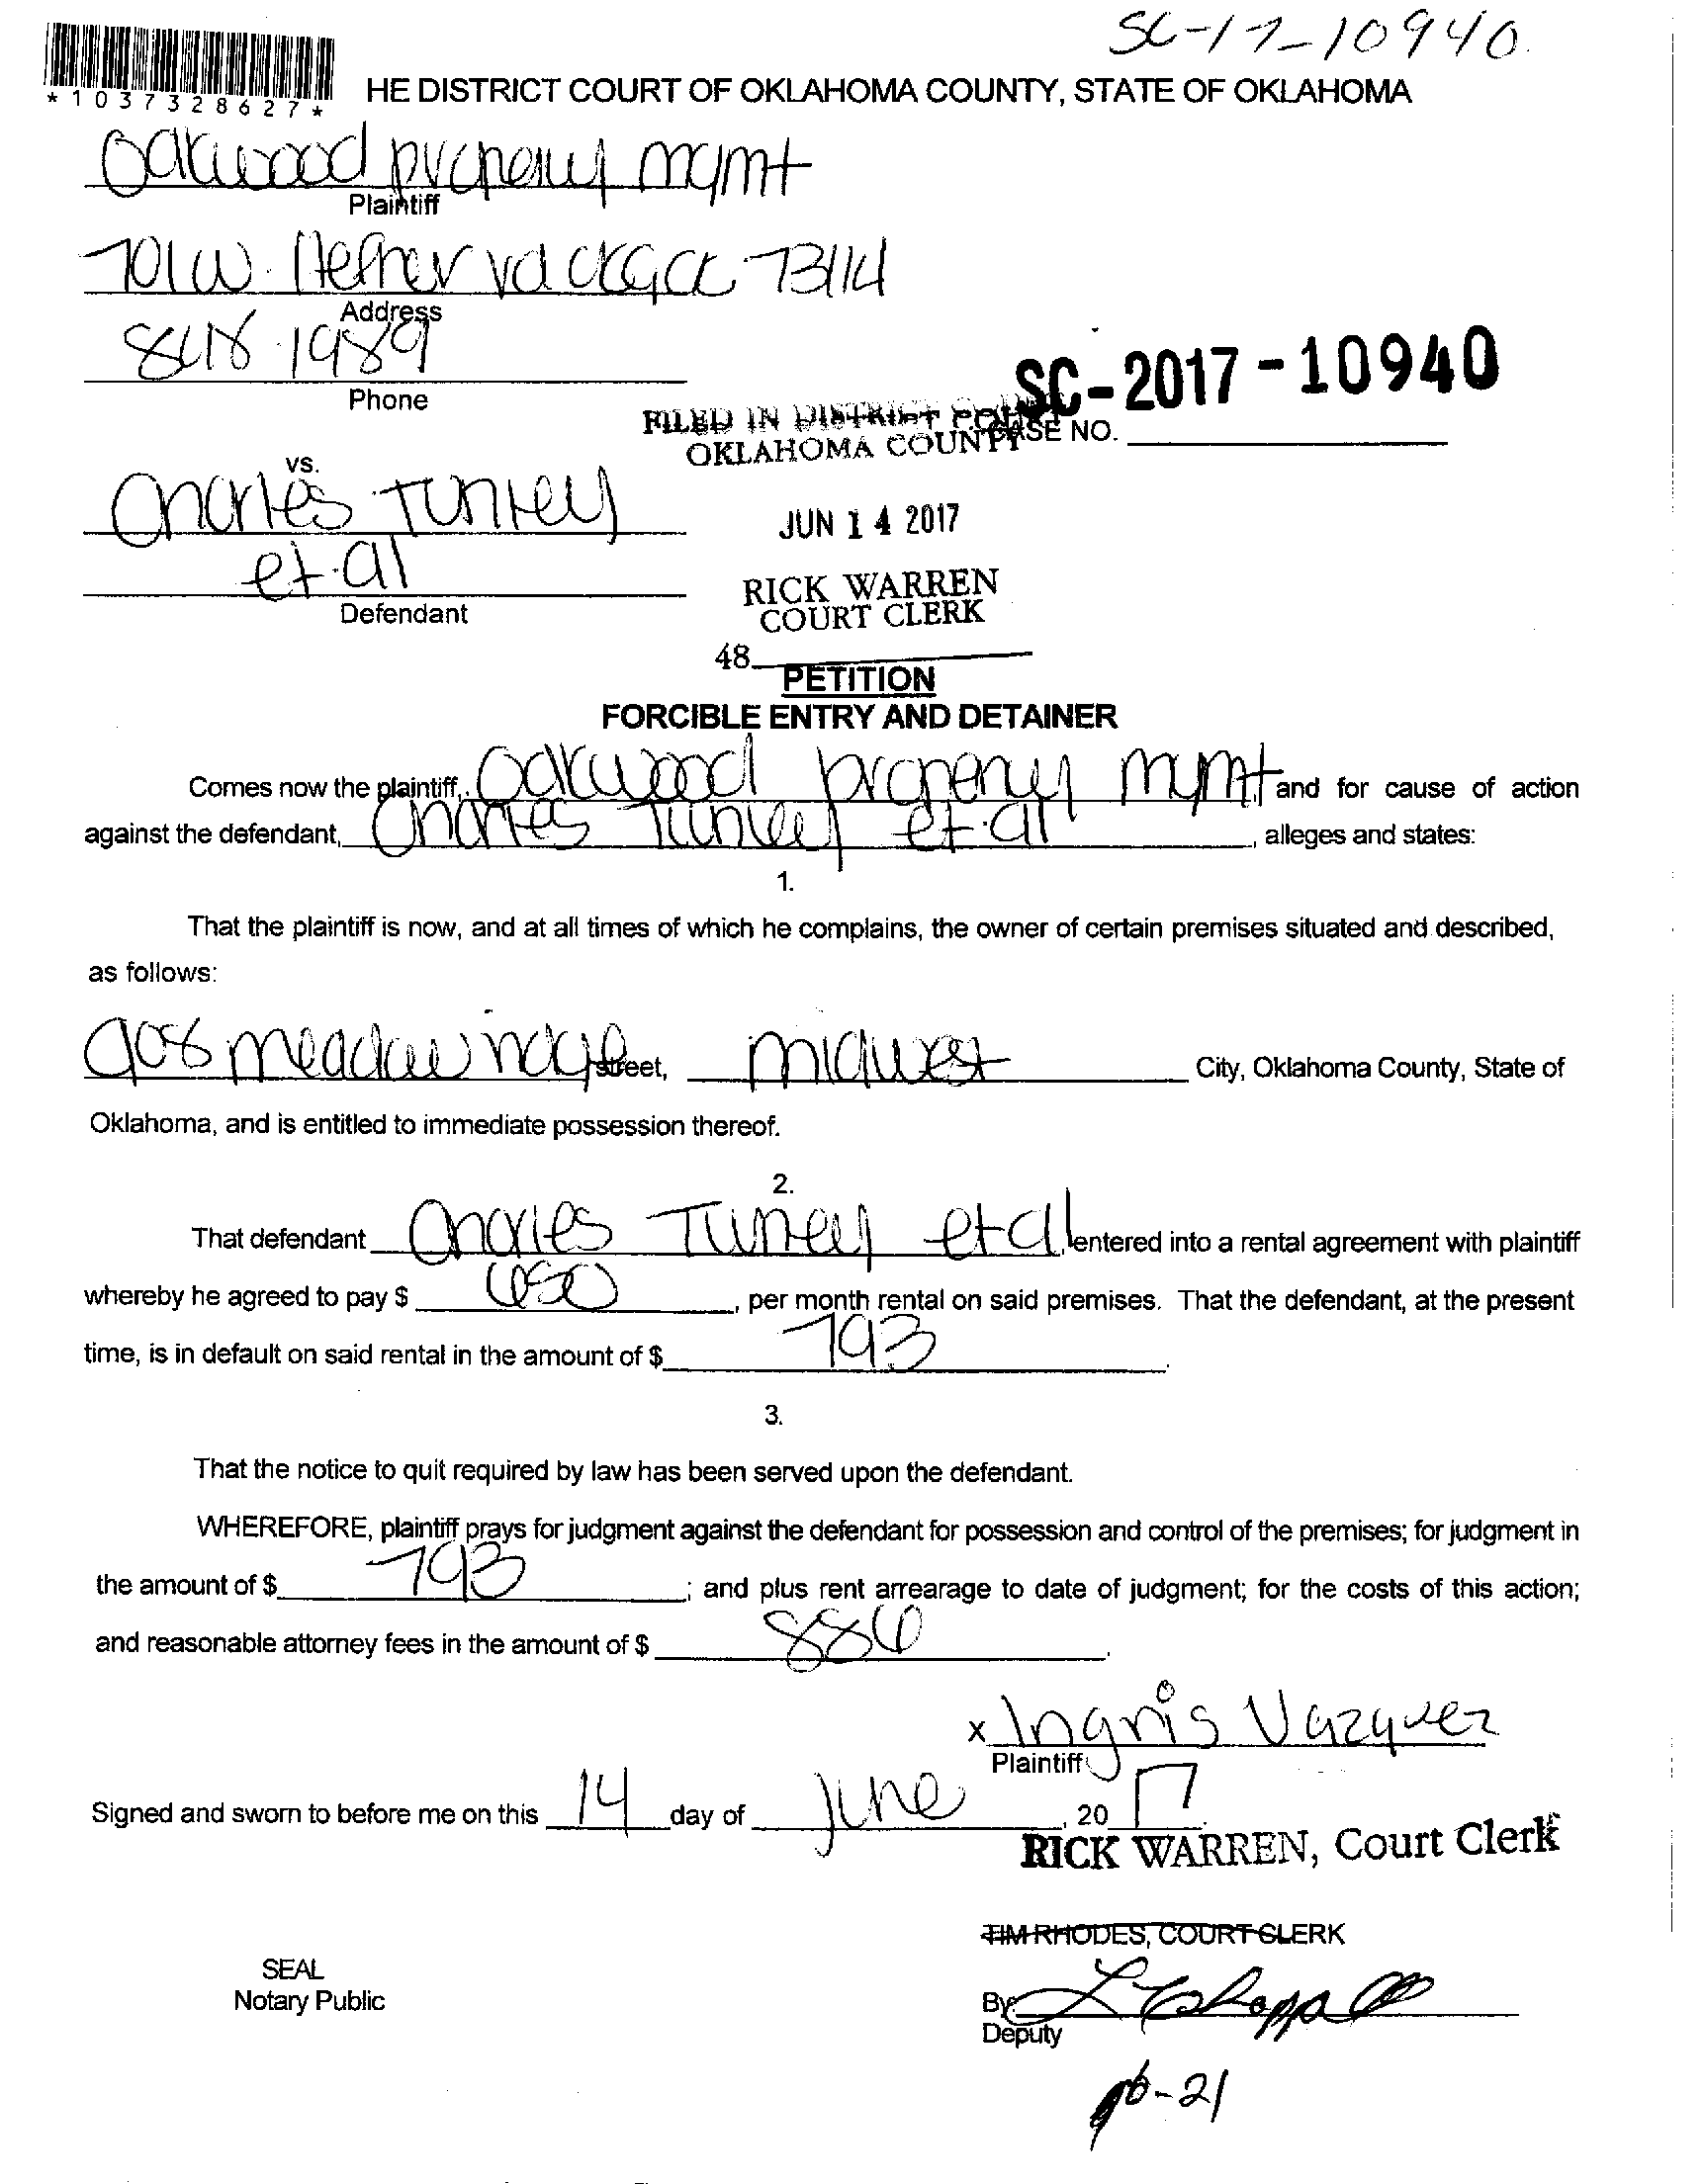 SC-17-10940
*1037328627*
HE DISTRICT COURT OF OKLAHOMA COUNTY, STATE OF OKLAHOMA
Oakwood property mgmt
Plaintiff
701 W. Hefner rd 73114
Address
848 1989
Phone
SC-2017-10940
FILED IN DISTRICT COURT
OKLAHOMA COUNTY
CASE NO.
vs.
Charles Tunley
et al
Defendant
JUN 14 2017
RICK WARREN
COURT CLERK
48
PETITION
FORCIBLE ENTRY AND DETAINER
Comes now the plaintiff, Oakwood property mgmt, and for cause of action
against the defendant, Charles Tunley et al, alleges and states:
1.
That the plaintiff is now, and at all times of which he complains, the owner of certain premises situated and described,
as follows:
908 meadow ridge street, midwest City, Oklahoma County, State of
Oklahoma, and is entitled to immediate possession thereof.
2.
That defendant Charles Tunley et al, entered into a rental agreement with plaintiff
whereby he agreed to pay $ 650, per month rental on said premises. That the defendant, at the present
time, is in default on said rental in the amount of $ 793.
3.
That the notice to quit required by law has been served upon the defendant.
WHEREFORE, plaintiff prays for judgment against the defendant for possession and control of the premises; for judgment in
the amount of $ 793; and plus rent arrearage to date of judgment; for the costs of this action;
and reasonable attorney fees in the amount of $ 886.
x Ingris Vazquez
Plaintiff
Signed and sworn to before me on this 14 day of June, 20 17.
RICK WARREN, Court Clerk
TIM RHODES, COURT CLERK
SEAL
Notary Public
By
Deputy